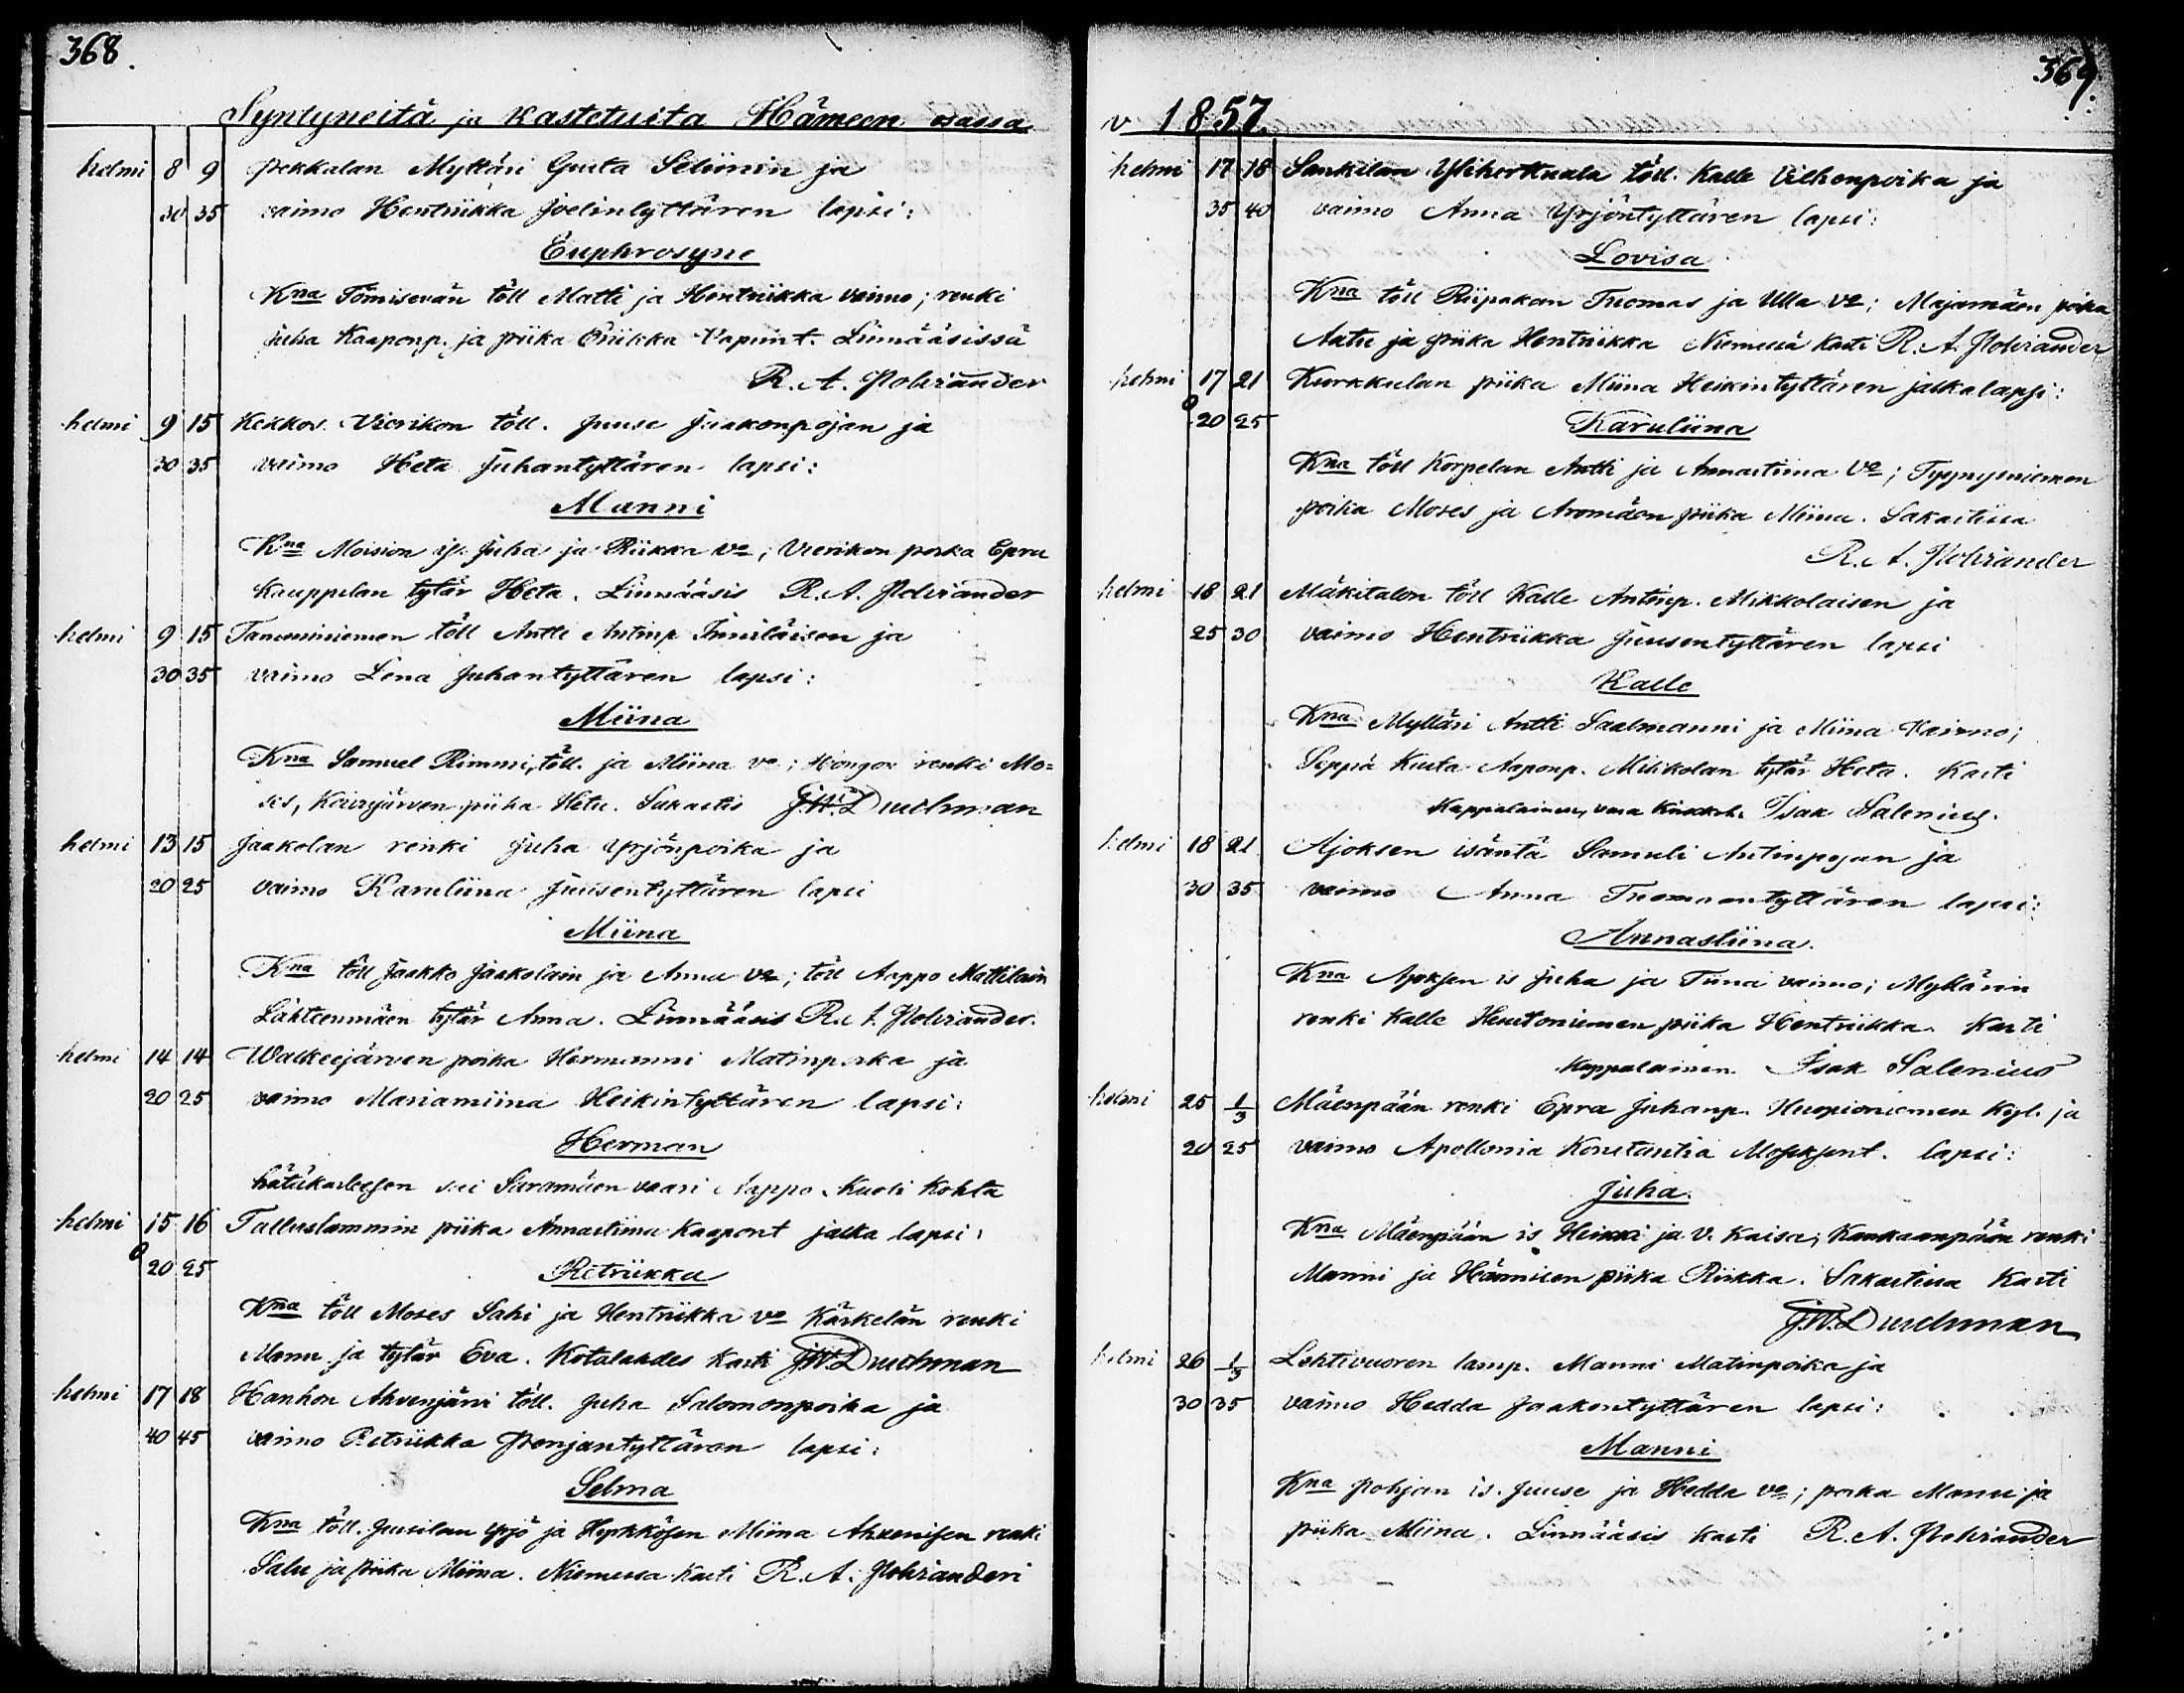 368.
Syntyneitä ja Kastetuita Hämeen osassa
helmi 8 9 Pekkalan Mylläri Gusta Seliinin ja
30 35 vaimo Hentriikka Joelintyttären lapsi:
Euphrosyne
Kna Tömisevän töll Matti ja Hentriikka vaimo; renki
Juha Kaaponp. ja piika Priikka Vapunt. Linnääsissä
R. A. Polviander
helmi 9 15 Kekkos. Vierikon töll. Juuse Jaakonpojan ja
30 35 vaimo Heta Juhantyttären lapsi:
Manni
Kna Moision is. Juha ja Riikka vo; Vierikon poika Epra
Kauppilan tytär Heta. Linnääsis R. A. Polviander
helmi 9 15 töll Antti Antinp ja
30 35 vaimo Lena Juhantyttären lapsi:
Miina
Kna Samuel Rimmi, töll. ja Miina vo; Hongos renki Mo=
ses, piika Heta. Sakastis J.W. Duchman
helmi 13 15 Jaakolan renki Juha Yrjönpoika ja
20 25 vaimo Karuliina Juusentyttären lapsi
Miina
Kna töll Jaakko Jaakolain ja Anna vo; töll Aappo Mattilain
Lähteenmäen tytär Anna. Linnääsis R. A. Polviander.
helmi 14 14 Walkeejärven poika Hermanni Matinpoika ja
20 25 vaimo Mariamiina Heikintyttären lapsi:
Herman
hätäkasteesen Saramäen vaari Aappo. Kuoli kohta
helmi 15 16 Talluslammin piika Annastiina Kaapont jalka lapsi:
0 20 25 Retriikka
Kna töll Moses Sahi ja Hentriikka vo Kärkelän renki
Manu ja tytär Eva. Kotalahdes kasti J.W. Duchman
helmi 17 18 Hanhon Ahvenjärvi töll. Juha Salomonpoika ja
40 45 vaimo Retriikka Penjantyttären lapsi:
Selma
Kna töll. Juusilan Yrjö ja Hepkkösen Miina Ahvenisen renki
Salu ja piika Miina. Niemessa kasti R. A. Polvianderi
369.
v 1857.
helmi 17 18 Sankilan Yliherttuala töll. Kalle Vilhonpoika ja
35 40 vaimo Anna Yrjöntyttären lapsi:
Lovisa
Kna töll Riipakan Tuomas ja Ulla vo; Majamäen poika
Aatu ja piika Hentriikka Niemessä kasti R. A. Polviander
helmi 17 21 Kurkkulan piika Miina Heikintyttären jalkalapsi:
0 20 25 Karuliina
Kna töll Korpelan Antti ja Annastiina vo; Typpysniemen
poika Moses ja Aromäen piika Miina. Sakastissa
R. A. Polviander
helmi 18 21 Mäkitalon töll Kalle Antinp. Mikkolaisen ja
25 30 vaimo Hentriikka Juusentyttären lapsi
Kalle
Kna Mylläri Antti Saalmanni ja Miina vaimo;
Seppä Kusta Aaponp. Mikkolan tytär Heta. Kasti
Kappalainen, vara kirkkoh. Isak Salenius.
helmi 18 21 Ajoksen isäntä Samuli Antinpojan ja
30 35 vaimo Anna Tuomaantyttären lapsi:
Annastiina.
Kna Ajoksen is Juha ja Tiina vaimo; Myllärin
renki Kalle piika Hentriikka. Kasti
Kappalainen. Isak Salenius
helmi 25 1/3 Mäenpään renki Epra Juhanp. Huopioniemen kyl. ja
20 25 vaimo Apollonia Konstantia Moseksent. lapsi:
Juha.
Kna Mäenpään is Heikki ja V. Kaisa; Kankaanpään renki
Manni ja Hännisen piika Riikka. Sakastissa kasti
J.W. Duchman
helmi 26 1/3 Lehtivuoren lamp. Manni Matinpoika ja
30 35 vaimo Hedda Jaakontyttären lapsi:
Manni
Kna Pohjan is. Juuse ja Hedda vo; poika Manu ja
piika Miina. Linnääsis kasti R. A. Polviander